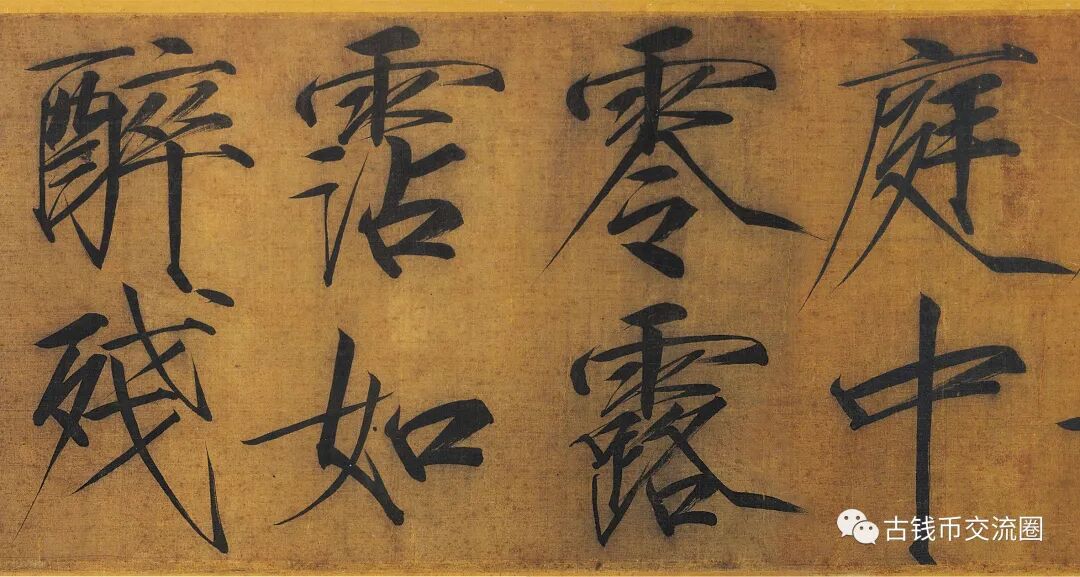 庭中
零露
霑如
醉殘
古钱币交流圈